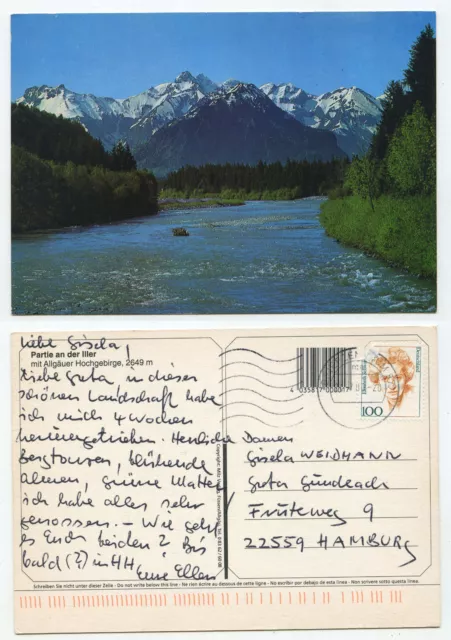 Liebe Gisela!
Partie an der Iller
mit Allgäuer Hochgebirge, 2649 m
Liebe Greta in dieser
schönen Landschaft habe
ich mich 4 Wochen
herumgetrieben. Herrliche
Bergtouren, blühende
Almen, grüne Matten
ich habe alles sehr
genossen. – Wie geht
es Euch beiden? Bis
bald (?) in HH
Eure Ellen
4 035817 000017
100
Damen
Gisela WEIDMANN
Greta Gundlach
Frúteweg 9
22559 HAMBURG
Schreiben Sie nicht unter dieser Zeile - Do not write below this line - Ne rien écrire au dessous de cette ligne - No escribir por debajo de esta línea - Non scrivere sotto questa linea